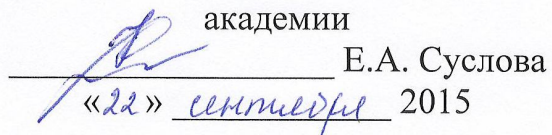 академии
Е.А. Суслова
«22» сентября 2015